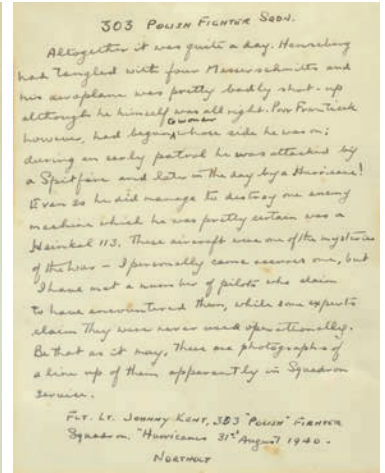 303 POLISH FIGHTER SQDN.
Altogether it was quite a day. Henneberg
had tangled with four Messerschmitts and
his aeroplane was pretty badly shot-up
although he himself was all right. Poor Frantisek
however, had begun whose side he was on;
during an early patrol he was attacked by
a Spitfire and later in the day by a Hurricane!
Even so he did manage to destroy one enemy
machine which he was pretty certain was a
Heinkel 113. These aircraft were one of the mysteries
of the war – I personally came across one, but
I have met a number of pilots who claim
to have encountered them, while some experts
claim they were never used operationally.
Be that as it may, there are photographs of
a line up of them apparently in Squadron
service.
FLT. LT. JOHNNY KENT, 303 "POLISH" FIGHTER
Squadron. "Hurricanes 31st August 1940 -
NORTHOLT